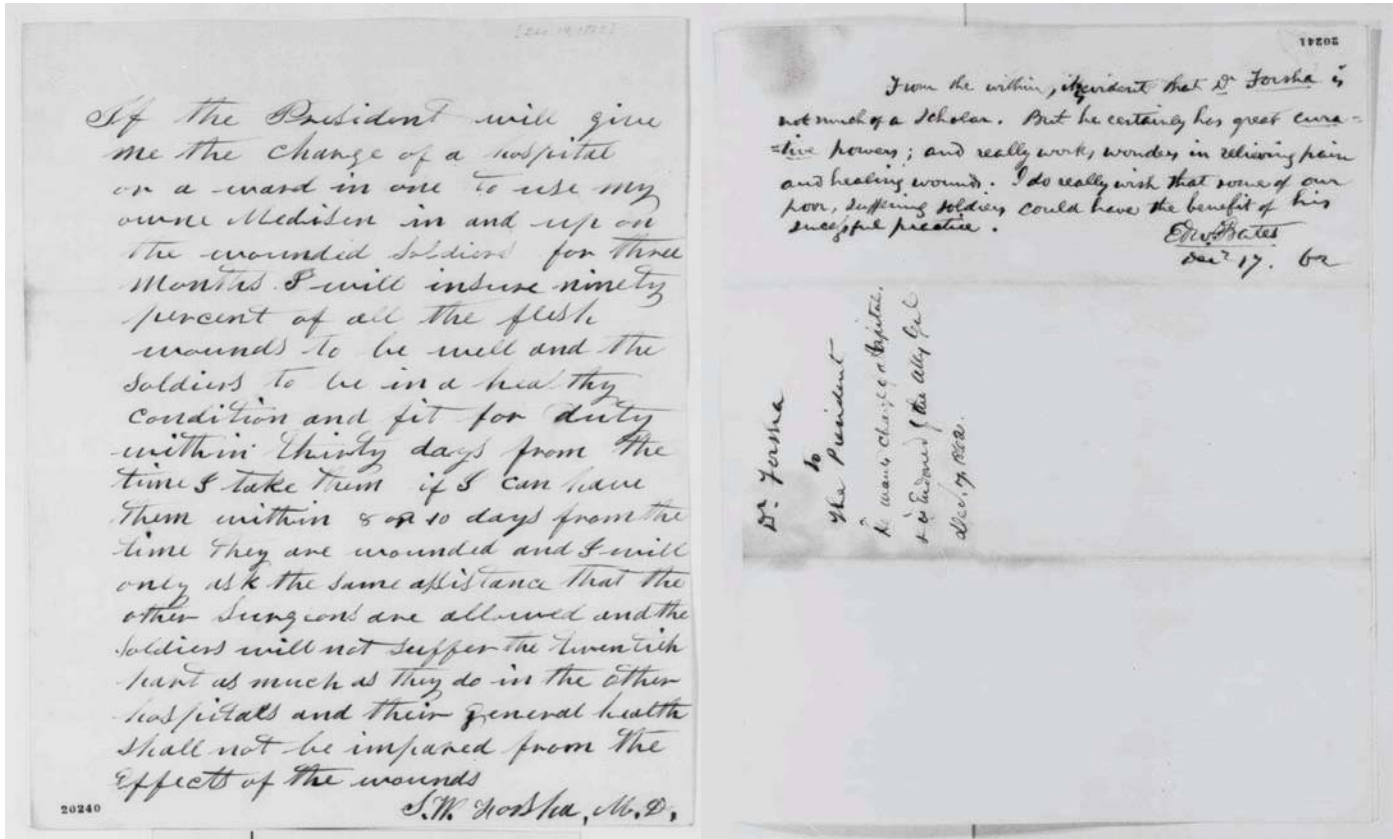 [Dec 17, 1862]
If the President will give
me the change of a hospital
or a ward in one to use my
owne Medisen in and up on
the wounded Soldiers for three
Months I will insure ninety
percent of all the flesh
wounds to be well and the
Soldiers to be in a healthy
condition and fit for duty
within thirty days from the
time I take them if I can have
them within 8 or 10 days from the
time they are wounded and I will
only ask the same assistance that the
other Surgeons are allowed and the
Soldiers will not suffer the twentieh
part as much as they do in the other
hospitals and their general health
shall not be impared from the
Effects of the wounds
S. W. Forsha, M. D.
20240
20241
From the within, it is evident that Dr Forsha is
not much of a Scholar. But he certainly has great cura=
=tive powers; and really works, wonders in relieving pain
and healing wounds. I do really wish that some of our
poor, suffering soldiers could have the benefit of his
successful practice.
Edw. Bates
Decr 17. 62
Dr Forsha
to
The President
He wants charge of a Hospital.
& is Endorsed by the Atty Genl
Dec. 17, 1862.